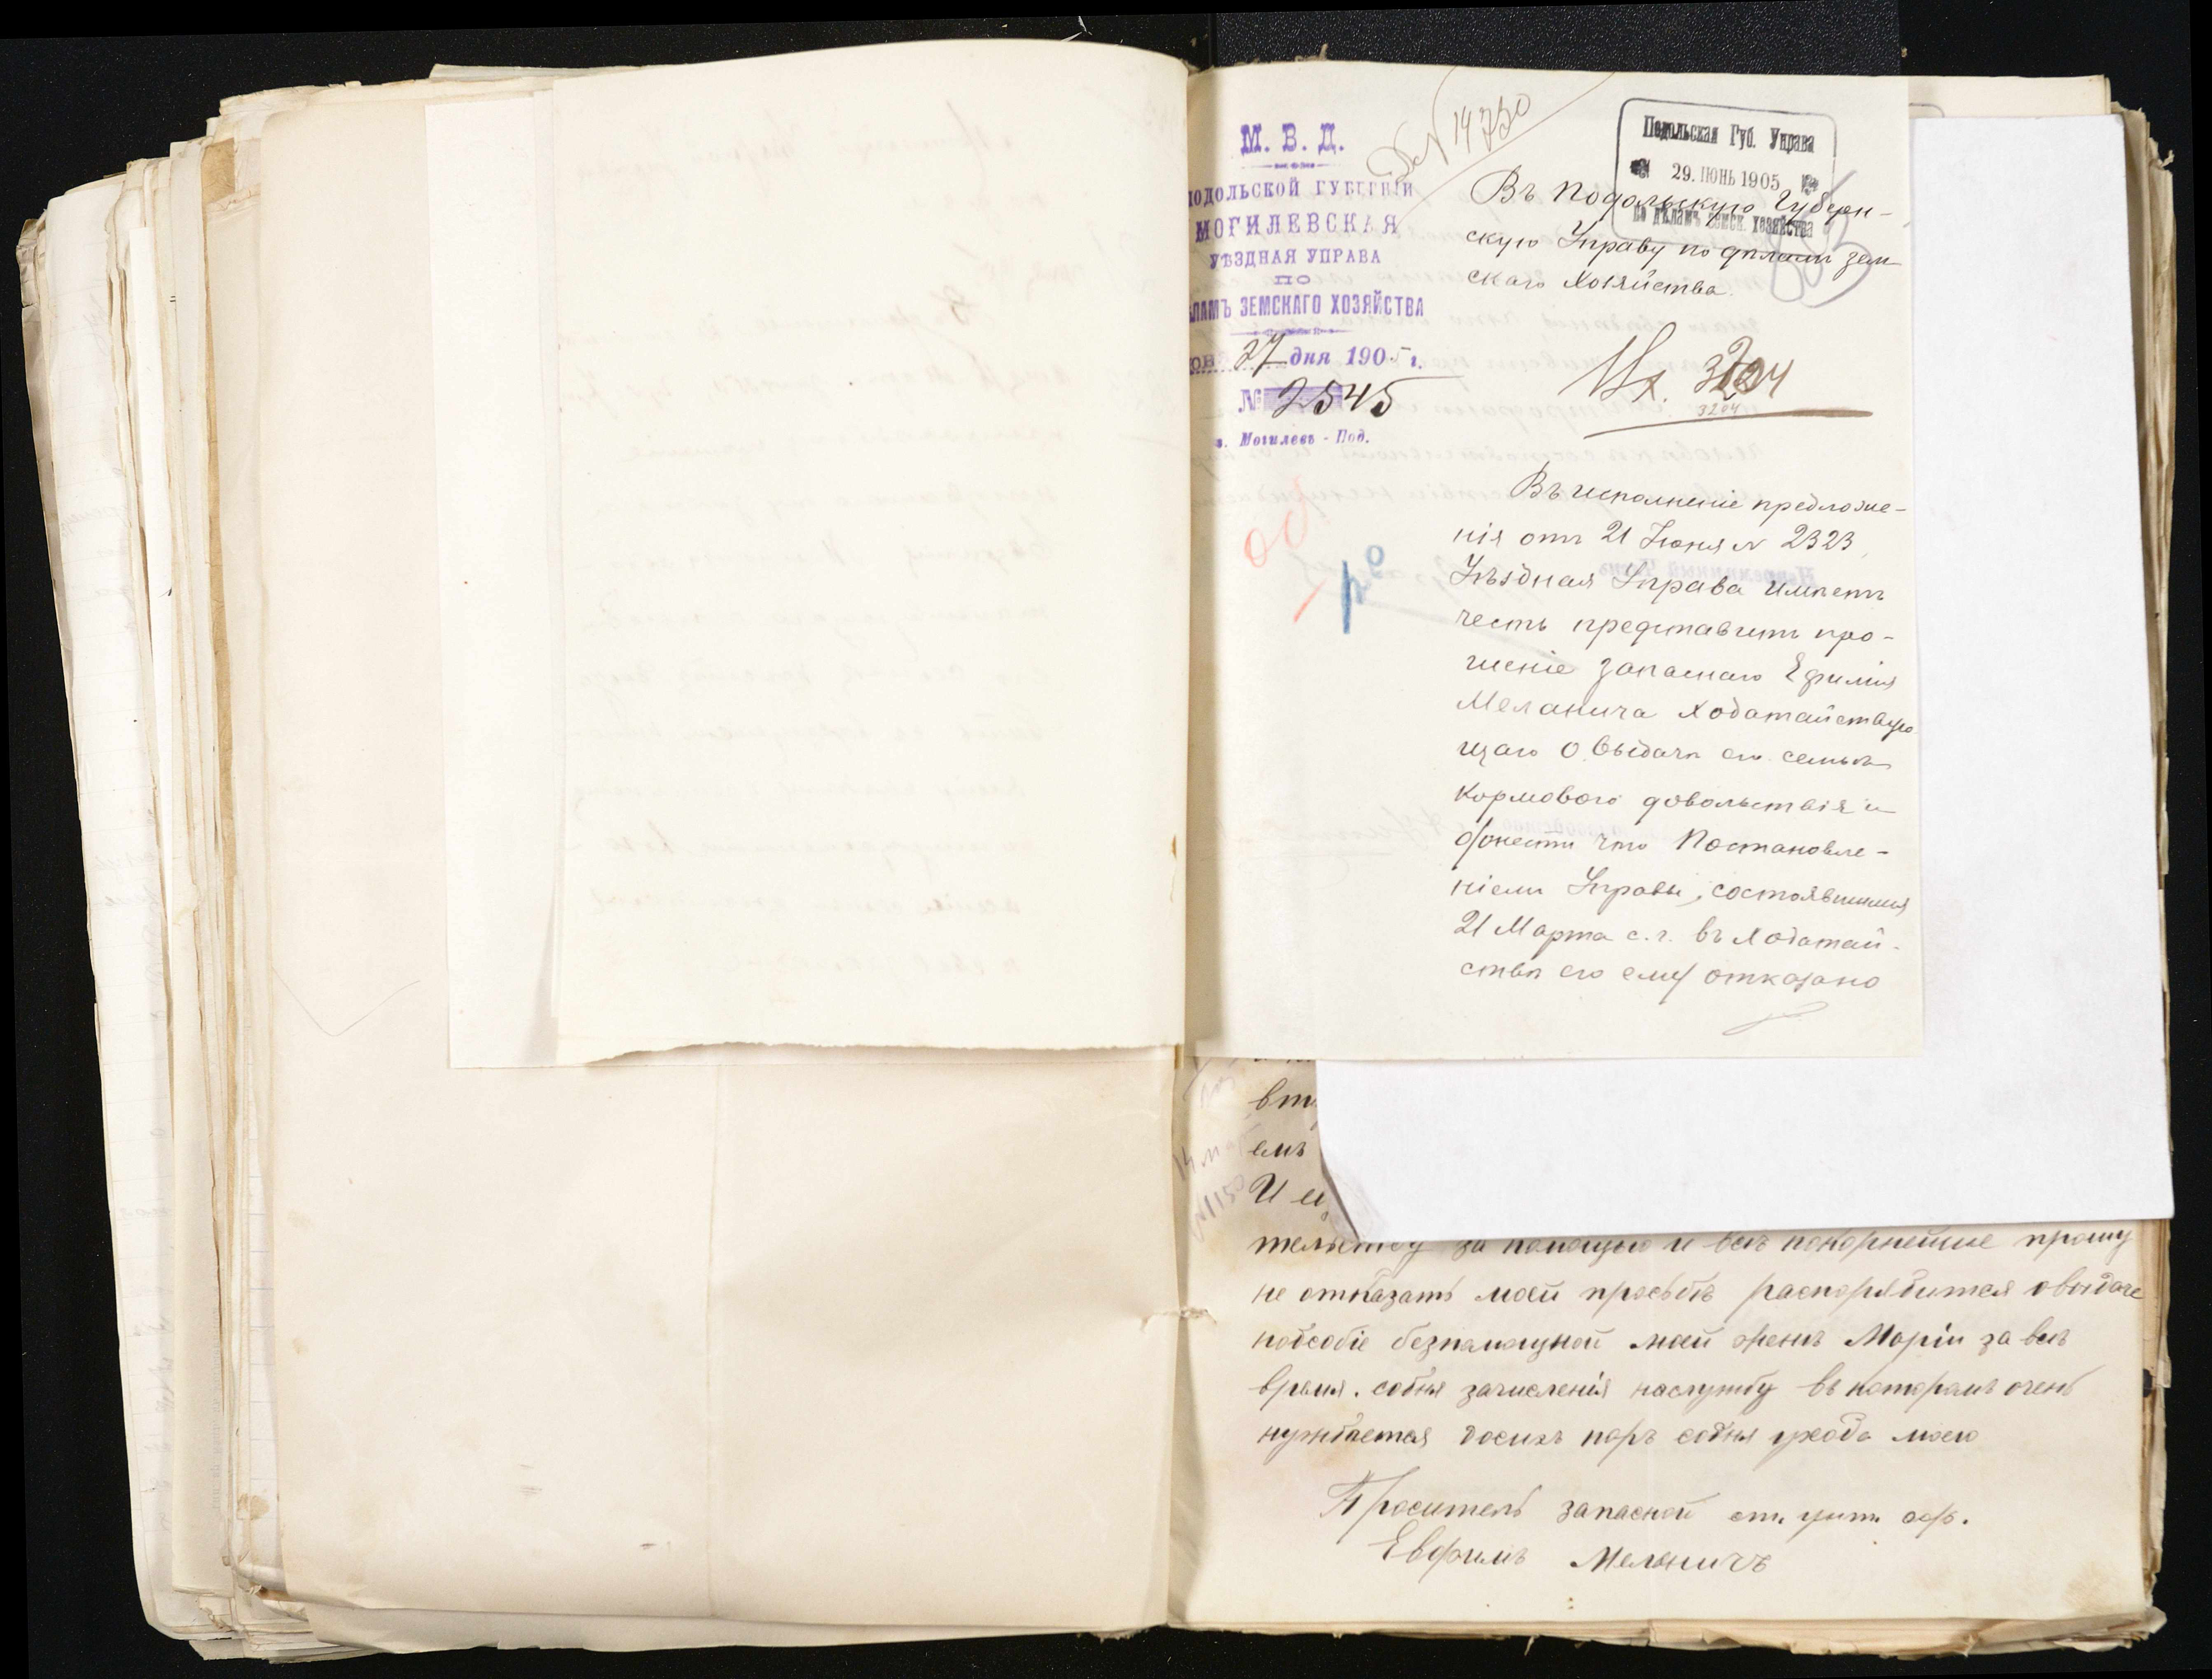 М. В. Д.
ПОДОЛЬСКОЙ ГУБЕРНІИ
МОГИЛЕВСКАЯ
УѢЗДНАЯ УПРАВА
ПО
ЛАМЪ ЗЕМСКАГО ХОЗЯЙСТВА
27 дня 1905 г.
№ 2545
г. Могилевъ - Под.
№ 14730
Подольская Губ. Управа
29. ІЮНЬ 1905
по дѣламъ земск. хозяйства
Въ Подольскую Губерн-
скую Управу по дѣламъ зем
скаго Хозяйства.
Вх. 3204
3204
Въ исполненіе предложе-
нія отъ 21 Іюня № 2323,
Уѣздная Управа имѣетъ
честь представить про-
шеніе запаснаго Ефимія
Меланича ходатайствую
щаго о выдачѣ его семьѣ
кормового довольствія и
донести что Постановле-
ніемъ Управы, состоявшимся
21 Марта с. г. въ ходатай-
ствѣ его ему отказано
емъ
№ 1150
тельству за помощью и васъ покорнейше прошу
не отказать моей просьбѣ распорядится овыдаче
пособіе безпамощной моей женѣ Маріи за весь
время. содня зачисленія наслужбу въ которамъ очень
нуждается досихъ поръ содня ухода моего
Проситель запасной ст. унт. оф.
Евфимъ Меланичъ